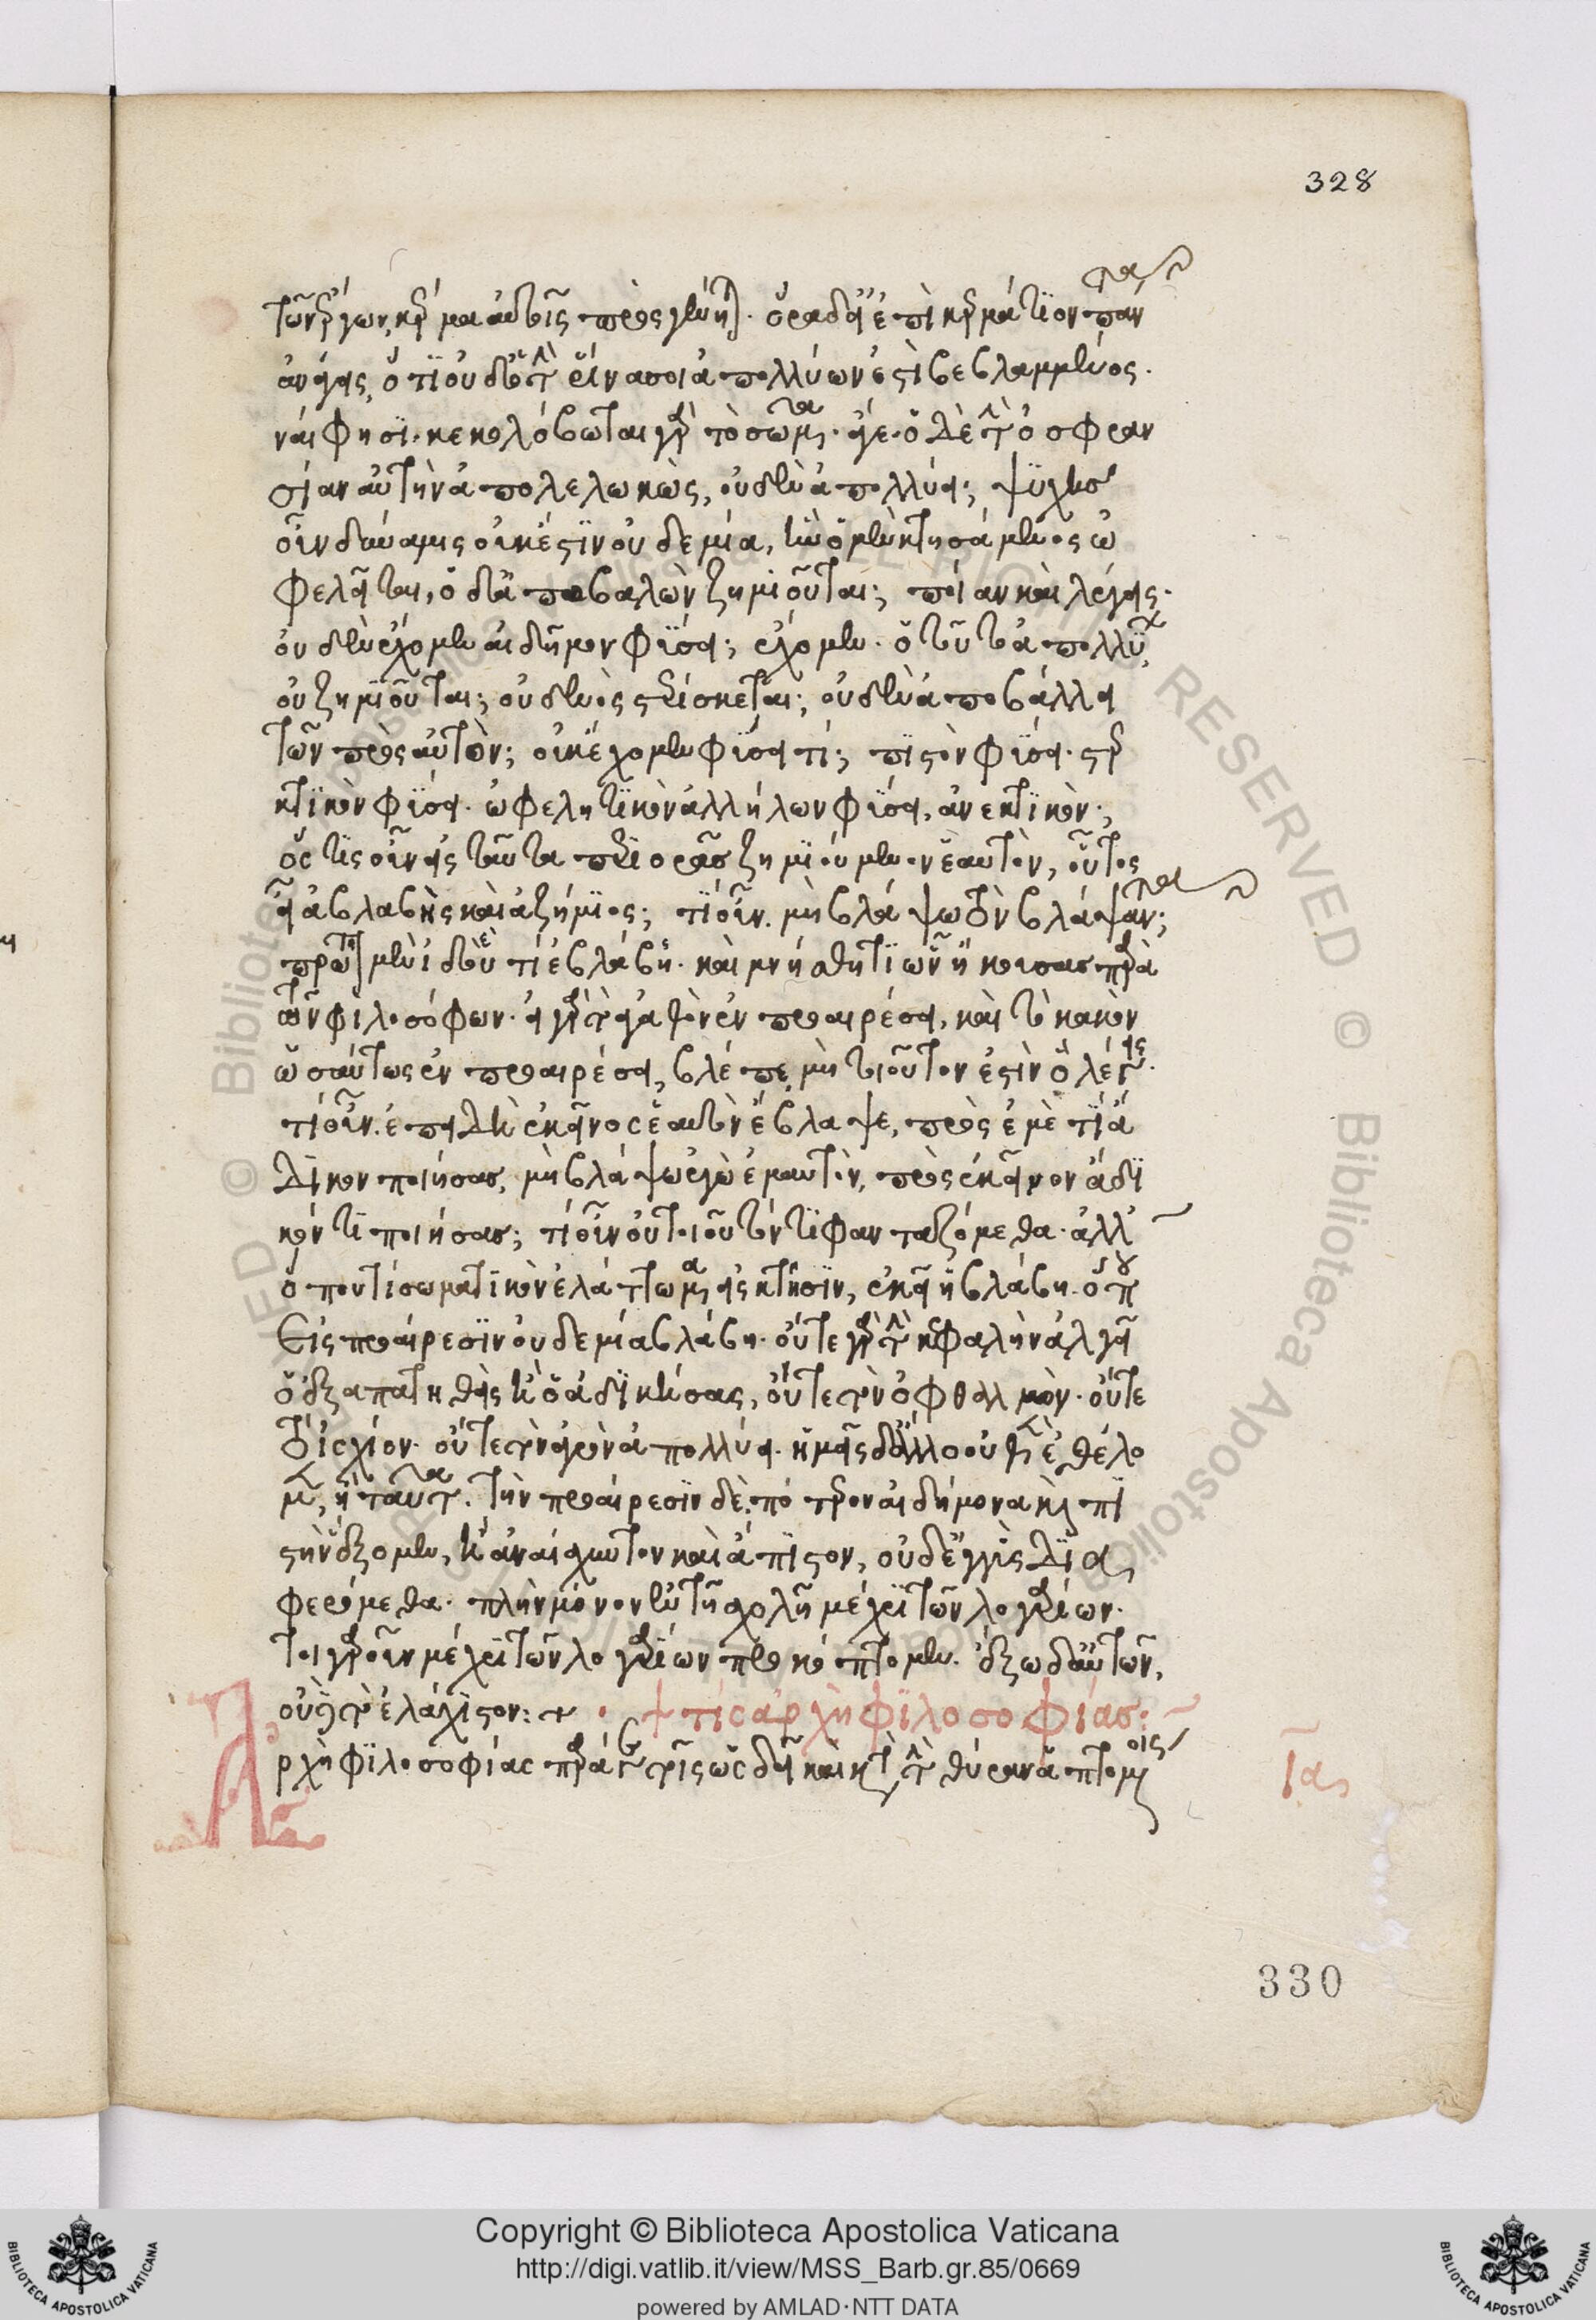 328
τῶν ἔργων, κέρμα αὐτοῖς προσγένηται. ὅρα δ' εἰ ἐπὶ κερμάτιον πάντα
ἀνάγεις, ὅτι οὐδ' ὁ τὴν ῥῖνα σοι ἀπολλύων ἐστὶ βεβλαμμένος.
ναί φησι. κεκολόβωται γὰρ τὸ σῶμα. ἄγε. ὁ δὲ τὴν ὀσφραν
σίαν αὐτὴν ἀπολελωκὼς, οὐδὲν ἀπολλύει; ψυχῆς
οὖν δύναμις οὐκ ἔστιν οὐδεμία, ἣν ὁ μὲν κτησάμενος ὠ
φελεῖται, ὁ δ' ἀποβαλὼν ζημιοῦται; ποίαν καὶ λέγεις.
οὐδὲν ἔχομεν αἰδῆμον φύσει; ἔχομεν. ὁ τοῦτο ἀπολλύων
οὐ ζημιοῦται; οὐδενὸς στερίσκεται; οὐδὲν ἀποβάλλει
τῶν πρὸς αὐτόν; οὐκ ἔχομεν φύσει τί; πιστὸν φύσει. στερ
κτικὸν φύσει. ὠφελητικὸν ἀλλήλων φύσει, ἀνεκτικόν;
ὅστις οὖν εἰς ταῦτα περιορᾷ ζημιούμενον ἑαυτὸν, οὗτος
ᾖ ἀβλαβὴς καὶ ἀζήμιος; τί οὖν. μὴ βλάψω τὸν βλάψαντα;
πρῶτον μὲν ἰδοῦ τί ἐστι βλάβη. καὶ μνήσθητι ὧν ἤκουσας παρὰ
τῶν φιλοσόφων. εἰ γὰρ τὸ ἀγαθὸν ἐν προαιρέσει, καὶ τὸ κακὸν
ὡσαύτως ἐν προαιρέσει, βλέπε μὴ τοιοῦτον ἐστὶν ὃ λέγεις.
τί οὖν. ἐπειδὴ ἐκεῖνος ἑαυτὸν ἔβλαψε, πρὸς ἐμὲ τὶ ἄ
δικον ποιήσας, μὴ βλάψω ἐγὼ ἐμαυτὸν, πρὸς ἐκεῖνον ἄδι
κόν τι ποιήσας; τί οὖν οὐ τοιοῦτόν τι φανταζόμεθα. ἀλλ'
ὅπου τί σωματικὸν ἐλάττωμα εἰς κτῆσιν, ἐκεῖ ἡ βλάβη. ὅπου
εἰς προαίρεσιν οὐδεμία βλάβη. οὔτε γὰρ τὴν κεφαλὴν ἀλγεῖ
ὁ ἐξαπατηθεὶς ἢ ὁ ἀδικήσας, οὔτε τὸν ὀφθαλμόν. οὔτε
τὸ ἰσχίον. οὔτε τὸν ἀγρὸν ἀπολλύει. ἡμεῖς δ' ἄλλο οὐδὲν ἐθέλο
μεν, ἢ ταῦτα. τὴν προαίρεσιν δὲ. πότερον αἰδήμονα καὶ πι
στὴν ἕξομεν, ἢ ἀναίσχυντον καὶ ἄπιστον, οὐδ' ἐγγὺς δια
φερόμεθα. πλὴν μόνον ἐν τῇ σχολῇ μέχρι τῶν λογαρίων.
τοιγαροῦν μέχρι τῶν λογαρίων προκόπτομεν. ἔξω δ' αὐτῶν,
οὐδὲ τὸ ἐλάχιστον:+ · + τίς ἀρχὴ φιλοσοφίας:
Ἀρχὴ φιλοσοφίας παρά γε τοῖς ὡς δεῖ καὶ κατὰ τὴν θύραν ἁπτομένοις
ια
330
Copyright © Biblioteca Apostolica Vaticana
http://digi.vatlib.it/view/MSS_Barb.gr.85/0669
powered by AMLAD·NTT DATA